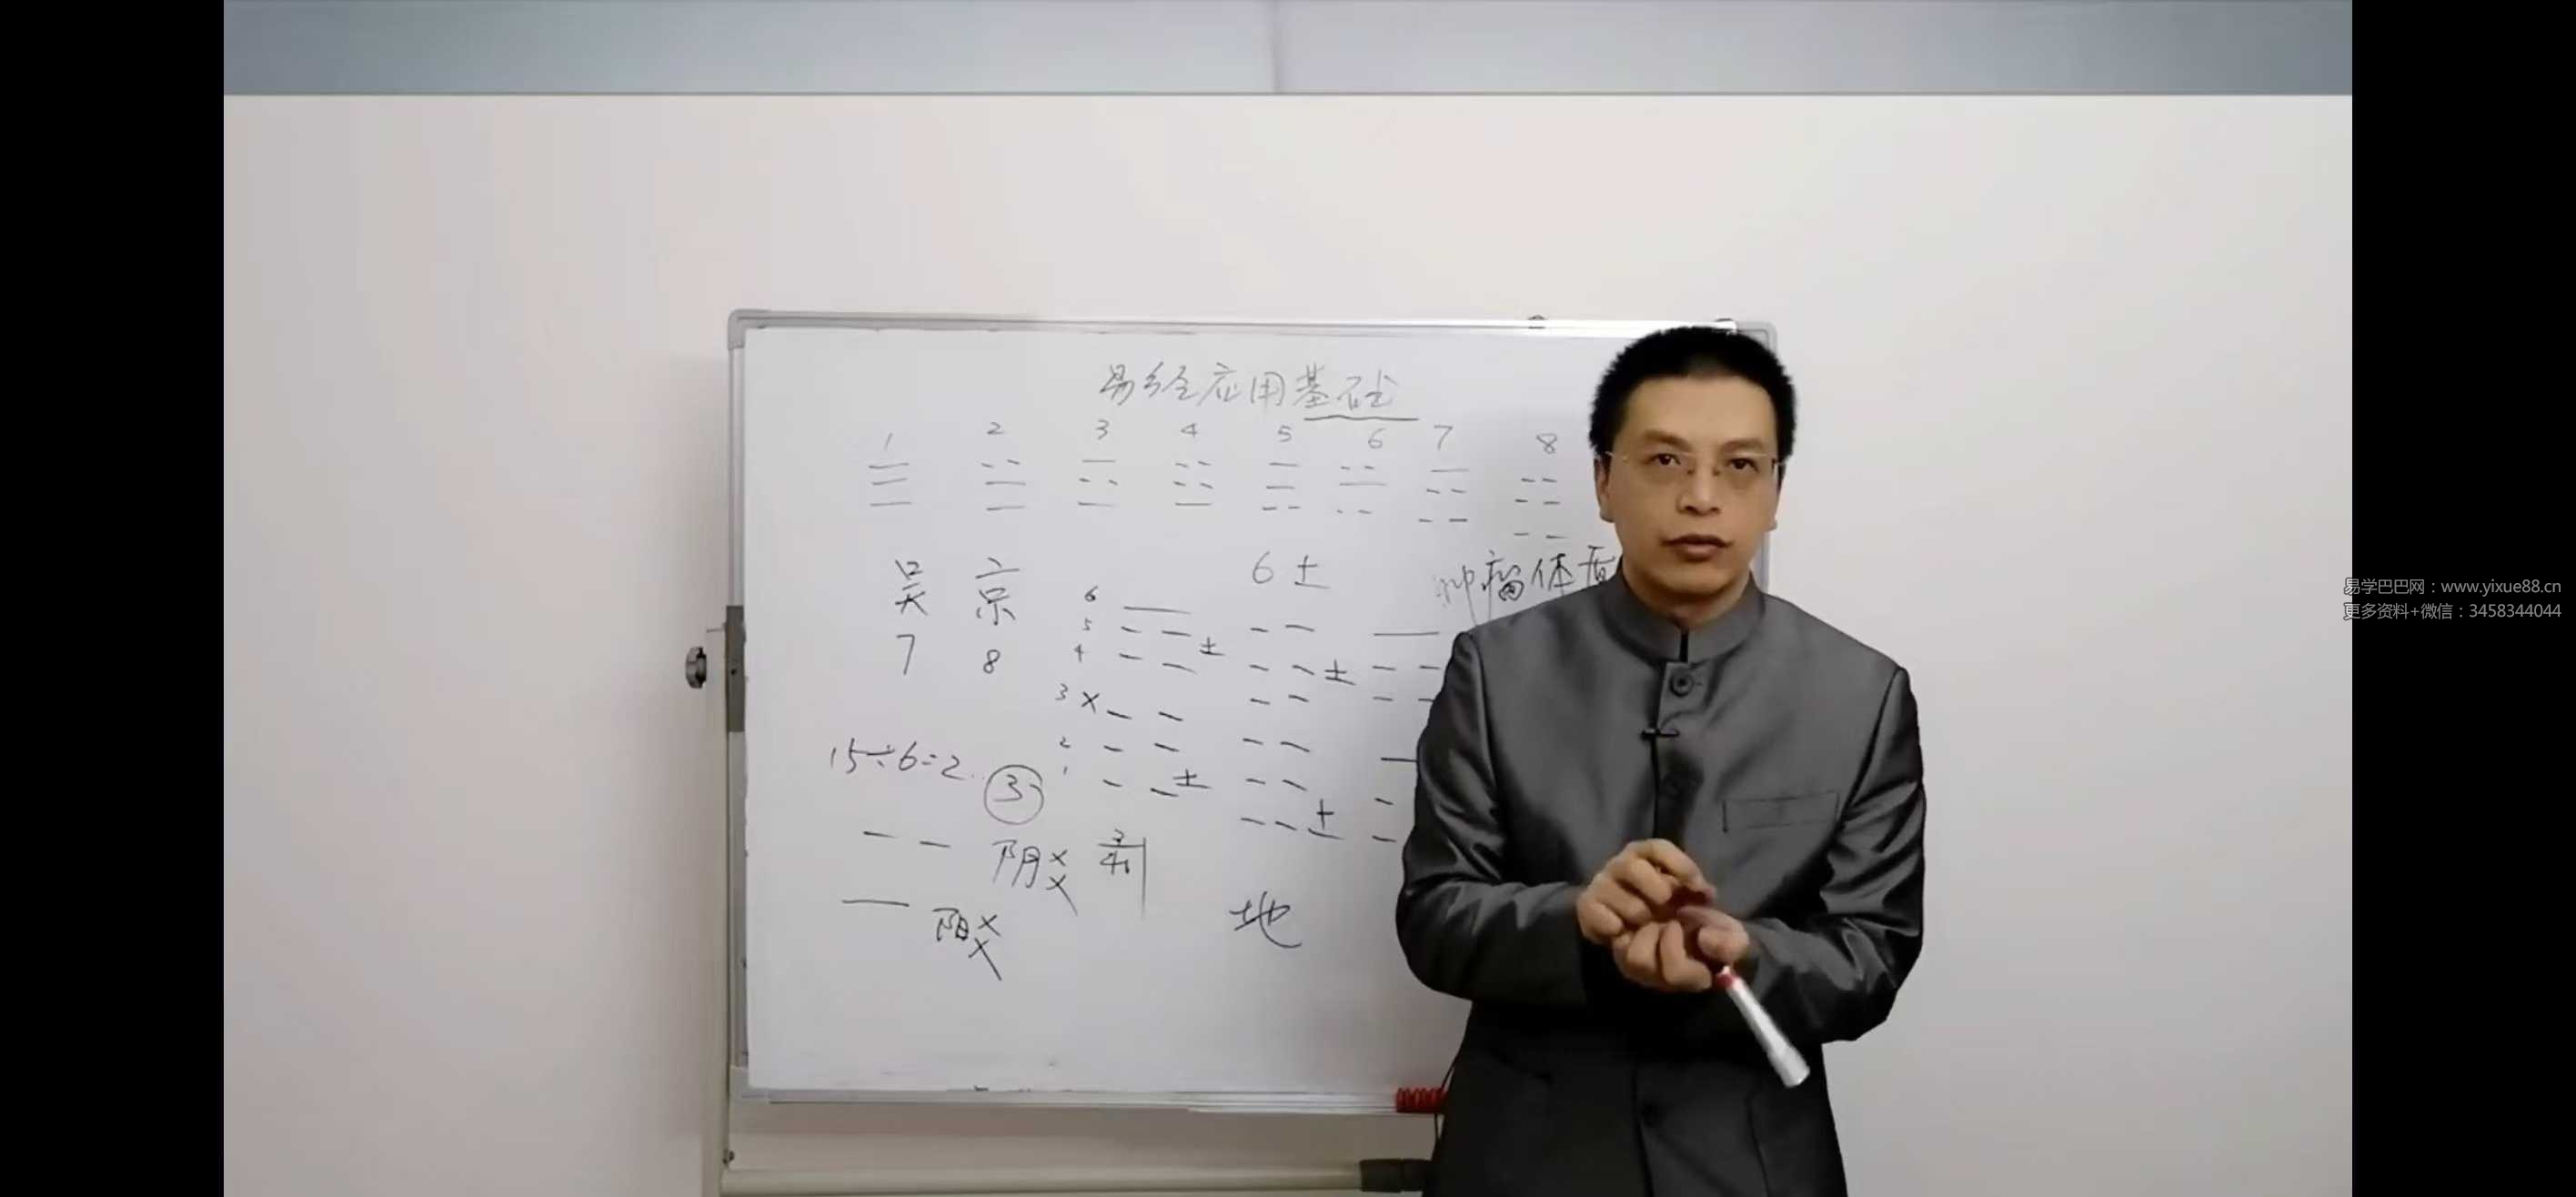 易经应用基础
1 2 3 4 5 6 7 8
吴 京
7 8
6 土
肿瘤体质
6
5
土
4
土
3 ×
2
1
土
土
15÷6=2…③
阴爻 剥
阳爻
地
易学巴巴网：www.yixue88.cn
更多资料+微信：3458344044